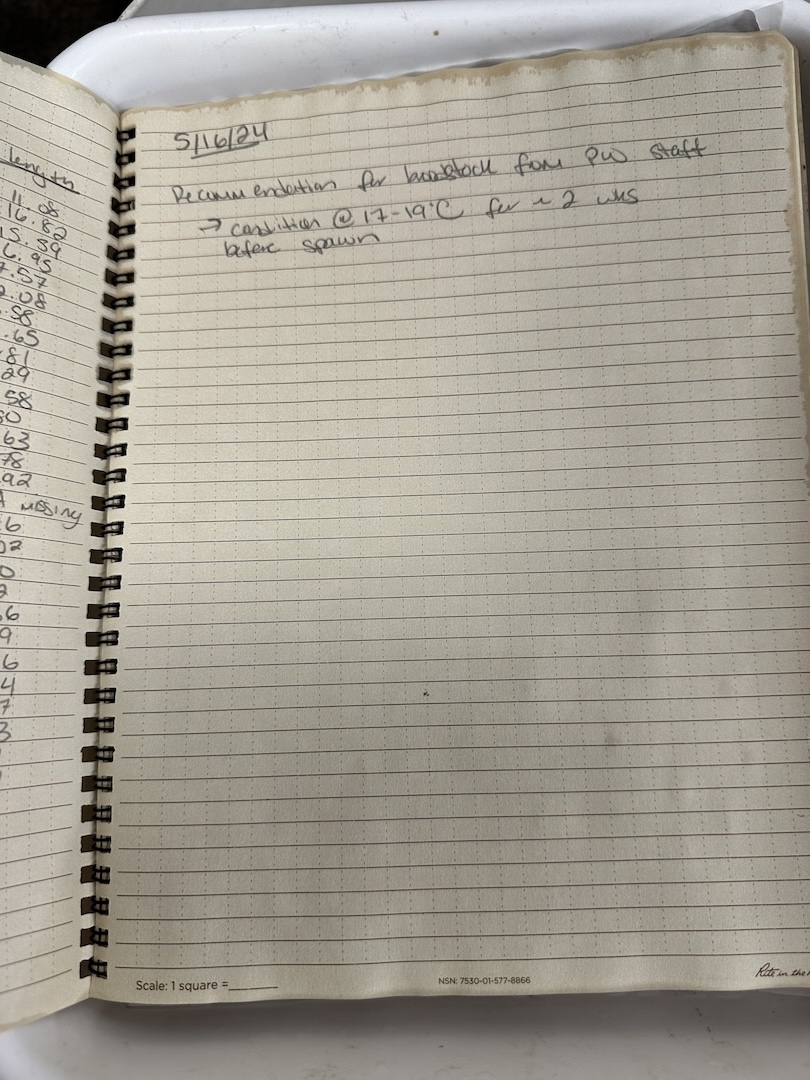 length
11.08
16.82
15.59
6.95
7.57
2.08
.58
.65
.81
29
58
50
63
78
92
missing
6
02
0
2
56
9
6
4
7
3
5/16/24
Recommendation for broodstock from PW staff
→ condition @ 17-19°C for ~ 2 wks
before spawn
Scale: 1 square =______
NSN: 7530-01-577-8866
Rite in the